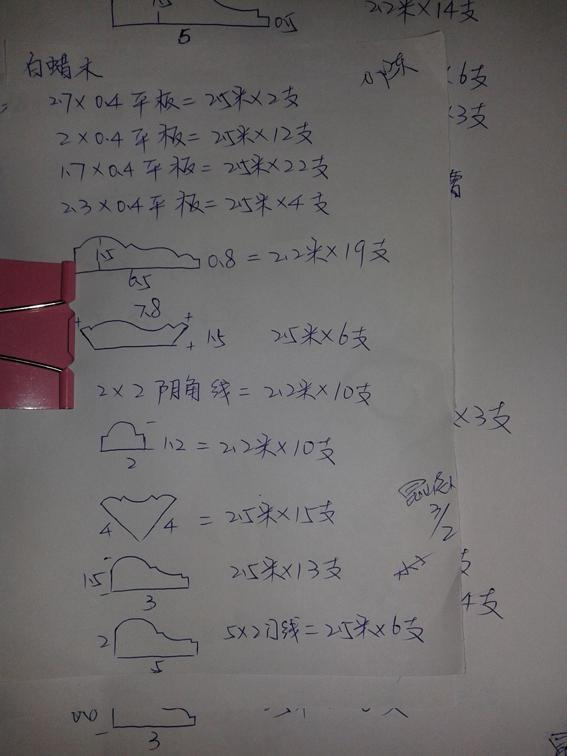 2.2米×14支
1.5
5
0.5
白蜡木
×6支
2.7×0.4平板=2.5米×2支
×3支
2×0.4平板=2.5米×12支
1.7×0.4平板=2.5米×22支
2.3×0.4平板=2.5米×4支
1.5
6.5
0.8=2.2米×19支
7.8
1.5 2.5米×6支
2×2阴角线=2.2米×10支
×3支
2
1.2=2.2米×10支
4 4 =2.5米×15支
3/2
1.5
3
2.5米×13支
支
4支
2
5
5×2门线=2.5米×6支
3